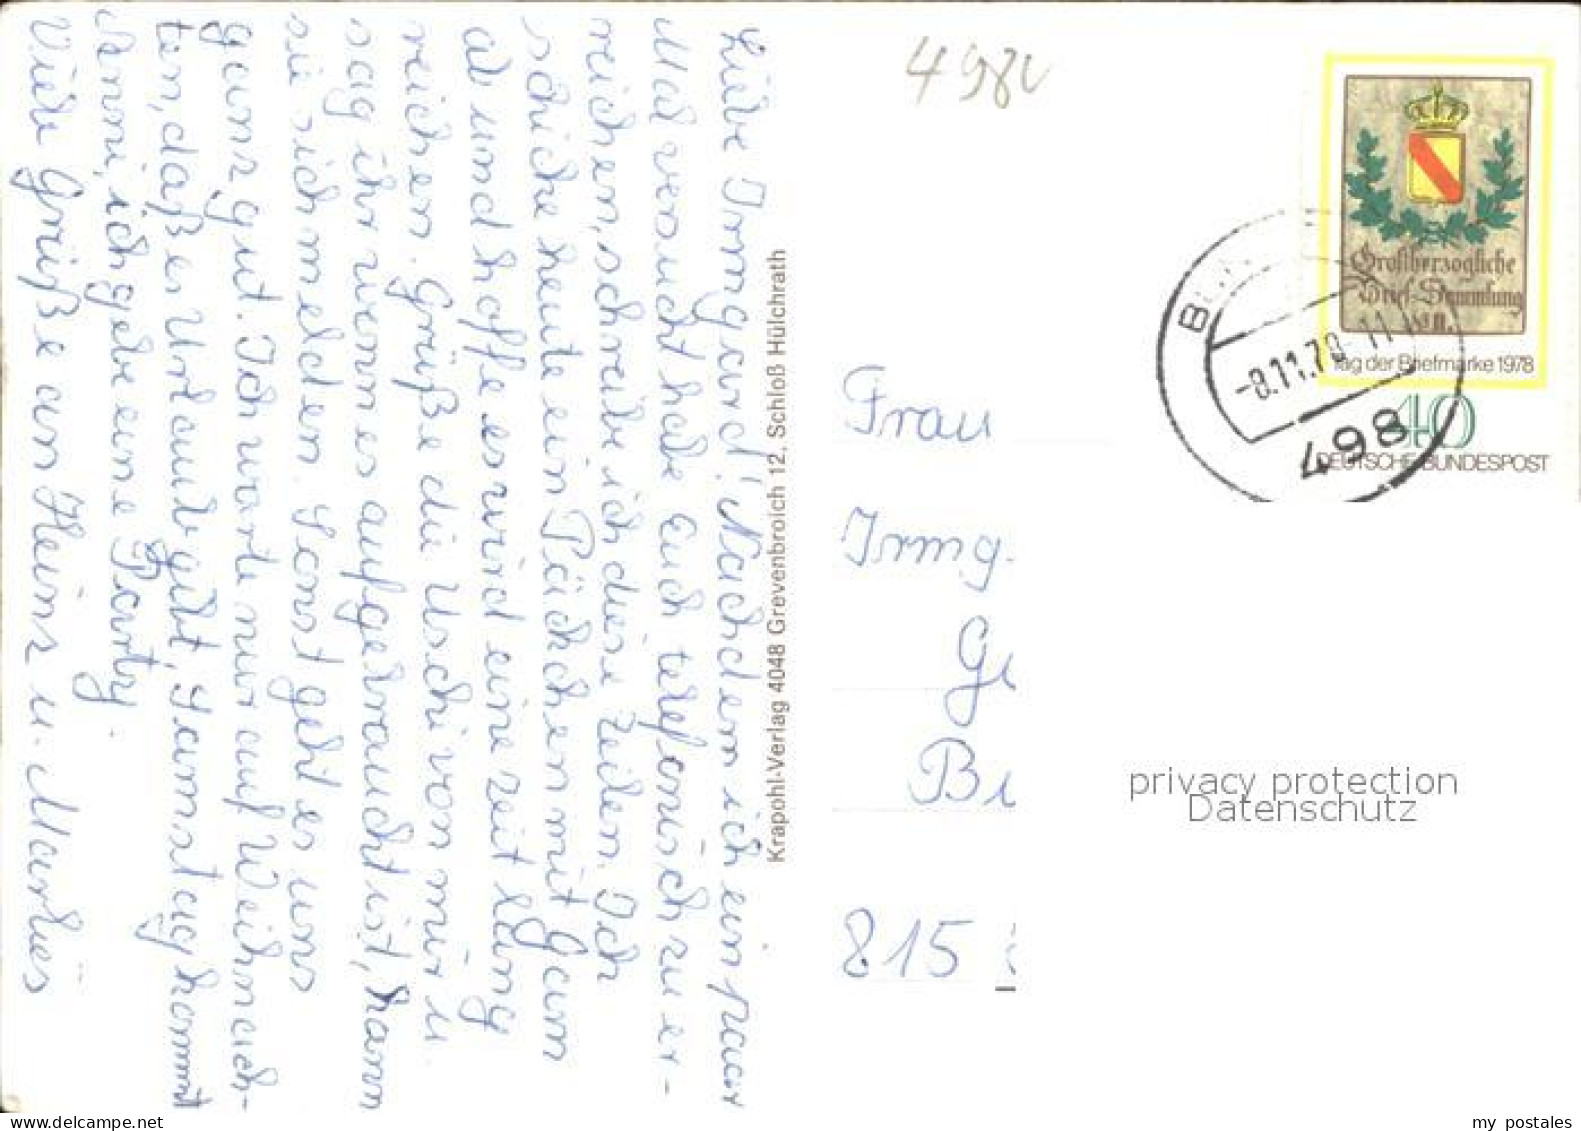 Liebe Irmgard! Nachdem ich ein paar
Mal versucht habe Euch telefonisch zu er-
reichen, schreibe ich diese Zeilen. Ich
schicke heute ein Päckchen mit Garn
ab und hoffe es wird eine zeit lang
reichen. Grüße die Uschi von mir u.
sag ihr wenn es aufgebraucht ist, kann
sie sich melden. Sonst geht es uns
ganz gut. Ich warte nur auf Weihnach-
ten, daß es Urlaub gibt, Samstag kommt
ich gebe eine Party.
Viele Grüße an Heinz u. Marlies
Krapohl-Verlag 4048 Grevenbroich 12, Schloß Hülchrath
498
Großherzogliche
Brief-Sammlung
Tag der Briefmarke 1978
40
DEUTSCHE BUNDESPOST
-8.11.78-11
498
Frau
Irmg.
G
B
815
privacy protection
Datenschutz
www.delcampe.net
my_postales